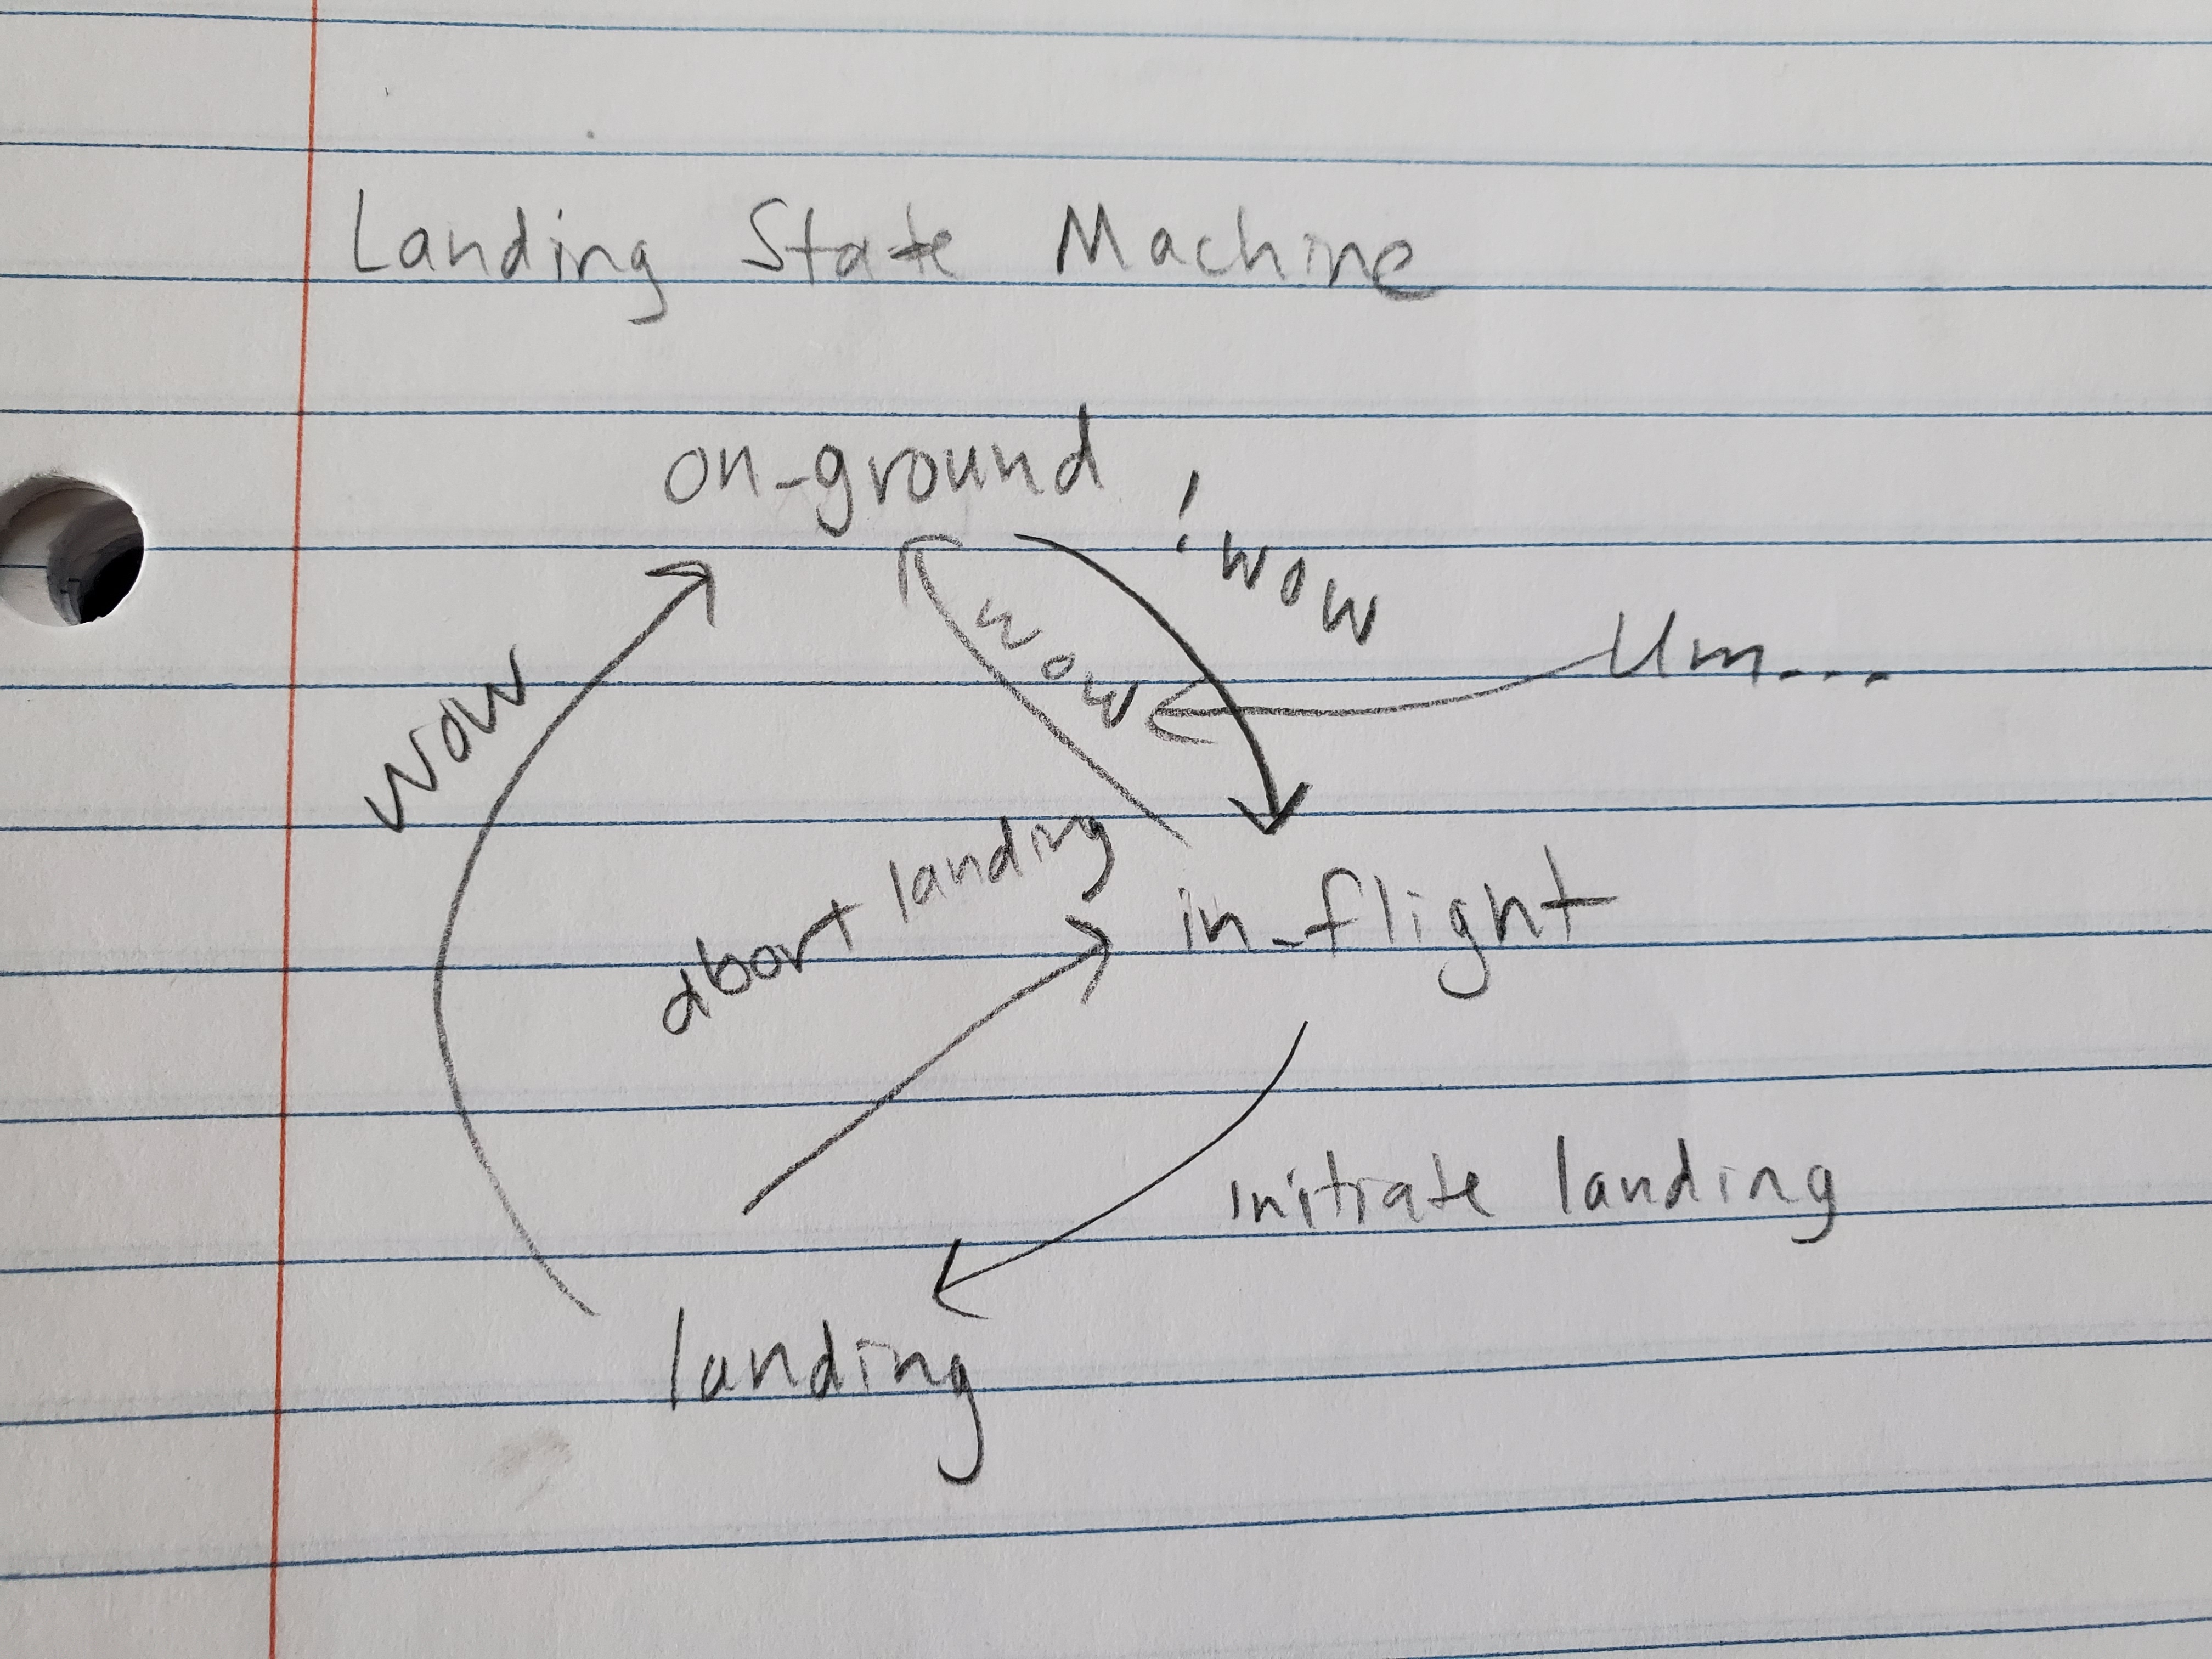 Landing State Machine
on-ground
! WOW
WOW
WOW
Um...
abort landing
in-flight
initiate landing
landing